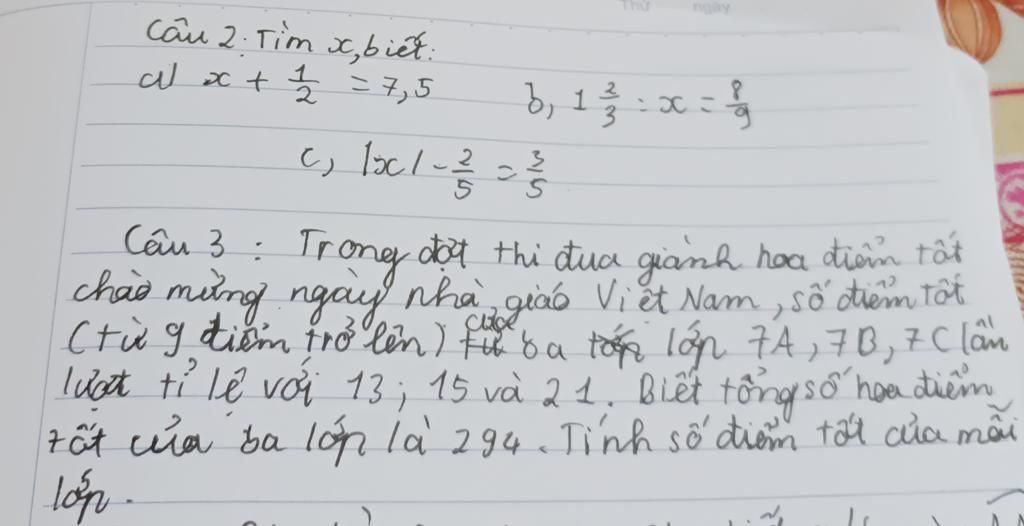 Thứ ngày
Câu 2. Tìm x, biết:
a) x + 1/2 = 7,5 b, 1 2/3 : x = 8/9
c, |x| - 2/5 = 3/5
Câu 3 : Trong đợt thi đua giành hoa điểm tốt
chào mừng ngày nhà giáo Việt Nam, số điểm tốt
(từ 9 điểm trở lên) của ba lớp 7A, 7B, 7C lần
lượt tỉ lệ với 13; 15 và 21. Biết tổng số hoa điểm
tốt của ba lớp là 294. Tính số điểm tốt của mỗi
lớp.